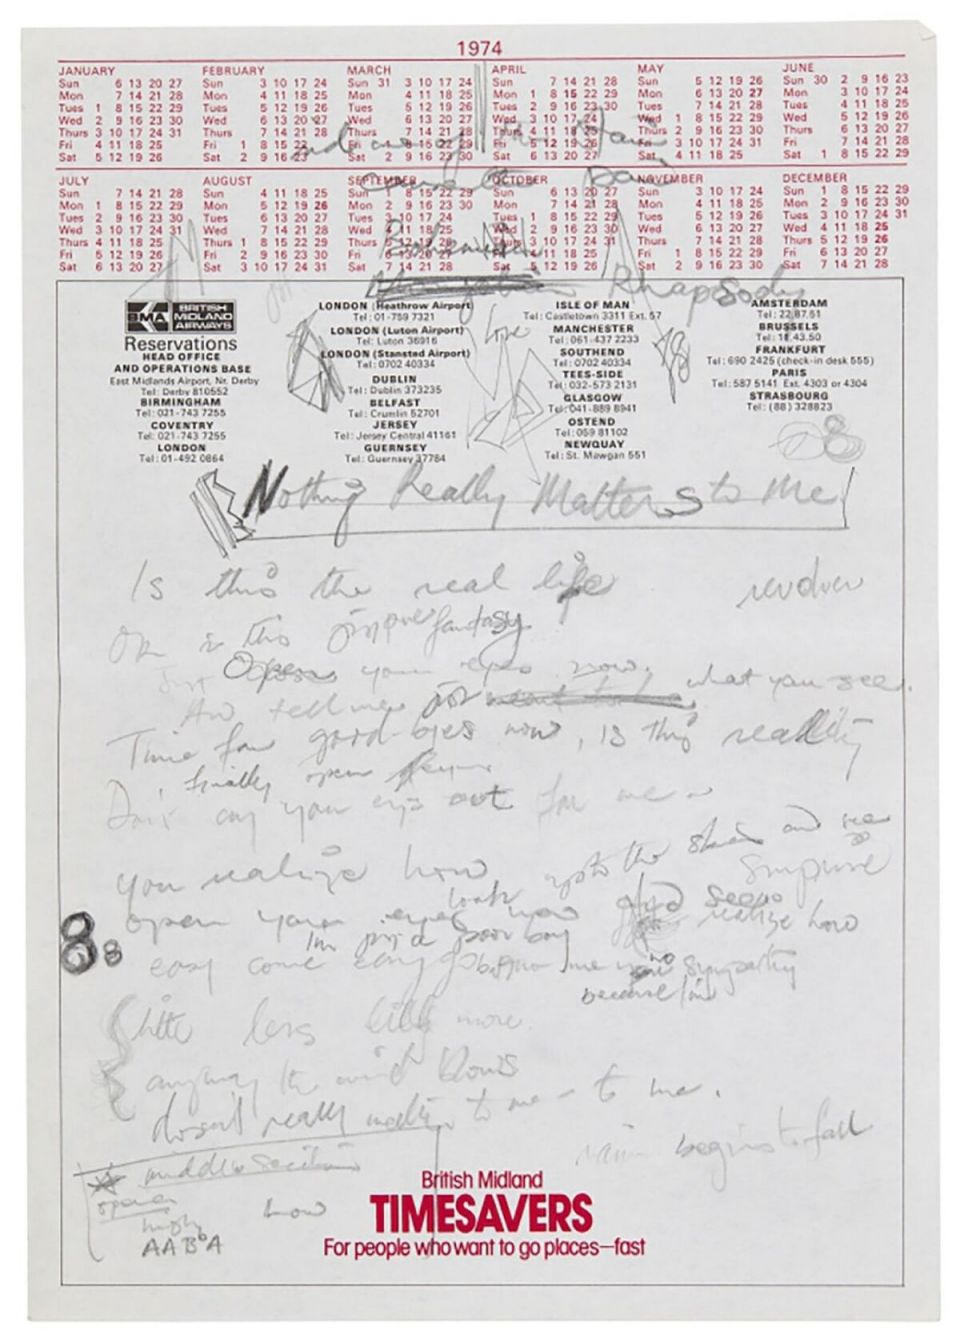 1974
JANUARY FEBRUARY MARCH APRIL MAY JUNE
Sun 6 13 20 27 Sun 3 10 17 24 Sun 31 3 10 17 24 Sun 7 14 21 28 Sun 5 12 19 26 Sun 30 2 9 16 23
Mon 7 14 21 28 Mon 4 11 18 25 Mon 4 11 18 25 Mon 1 8 15 22 29 Mon 6 13 20 27 Mon 3 10 17 24
Tues 1 8 15 22 29 Tues 5 12 19 26 Tues 5 12 19 26 Tues 2 9 16 23 30 Tues 7 14 21 28 Tues 4 11 18 25
Wed 2 9 16 23 30 Wed 6 13 20 27 Wed 6 13 20 27 Wed 3 10 17 24 Wed 1 8 15 22 29 Wed 5 12 19 26
Thurs 3 10 17 24 31 Thurs 7 14 21 28 Thurs 7 14 21 28 Thurs 4 11 18 25 Thurs 2 9 16 23 30 Thurs 6 13 20 27
Fri 4 11 18 25 Fri 1 8 15 22 Fri 1 8 15 22 29 Fri 5 12 19 26 Fri 3 10 17 24 31 Fri 7 14 21 28
Sat 5 12 19 26 Sat 2 9 16 23 Sat 2 9 16 23 30 Sat 6 13 20 27 Sat 4 11 18 25 Sat 1 8 15 22 29
JULY AUGUST SEPTEMBER OCTOBER NOVEMBER DECEMBER
Sun 7 14 21 28 Sun 4 11 18 25 Sun 1 8 15 22 29 Sun 6 13 20 27 Sun 3 10 17 24 Sun 1 8 15 22 29
Mon 1 8 15 22 29 Mon 5 12 19 26 Mon 2 9 16 23 30 Mon 7 14 21 28 Mon 4 11 18 25 Mon 2 9 16 23 30
Tues 2 9 16 23 30 Tues 6 13 20 27 Tues 3 10 17 24 Tues 1 8 15 22 29 Tues 5 12 19 26 Tues 3 10 17 24 31
Wed 3 10 17 24 31 Wed 7 14 21 28 Wed 4 11 18 25 Wed 2 9 16 23 30 Wed 6 13 20 27 Wed 4 11 18 25
Thurs 4 11 18 25 Thurs 1 8 15 22 29 Thurs 5 12 19 26 Thurs 3 10 17 24 31 Thurs 7 14 21 28 Thurs 5 12 19 26
Fri 5 12 19 26 Fri 2 9 16 23 30 Fri 6 13 20 27 Fri 4 11 18 25 Fri 1 8 15 22 29 Fri 6 13 20 27
Sat 6 13 20 27 Sat 3 10 17 24 31 Sat 7 14 21 28 Sat 5 12 19 26 Sat 2 9 16 23 30 Sat 7 14 21 28
Bohemian
Rhapsody
BMA BRITISH MIDLAND AIRWAYS
Reservations
HEAD OFFICE
AND OPERATIONS BASE
East Midlands Airport, Nr. Derby
Tel: Derby 810552
BIRMINGHAM
Tel: 021-743 7255
COVENTRY
Tel: 021-743 7255
LONDON
Tel: 01-492 0864
LONDON (Heathrow Airport)
Tel: 01-759 7321
LONDON (Luton Airport)
Tel: Luton 36916
LONDON (Stansted Airport)
Tel: 0702 40334
DUBLIN
Tel: Dublin 373235
BELFAST
Tel: Crumlin 52701
JERSEY
Tel: Jersey Central 41161
GUERNSEY
Tel: Guernsey 37784
Love
ISLE OF MAN
Tel: Castletown 3311 Ext. 57
MANCHESTER
Tel: 061-437 2233
SOUTHEND
Tel: 0702 40334
TEES-SIDE
Tel: 032-573 2131
GLASGOW
Tel: 041-889 8941
OSTEND
Tel: 059 81102
NEWQUAY
Tel: St. Mawgan 551
AMSTERDAM
Tel: 22.87.61
BRUSSELS
Tel: 18.43.50
FRANKFURT
Tel: 690 2425 (check-in desk 555)
PARIS
Tel: 587 5141 Ext. 4303 or 4304
STRASBOURG
Tel: (88) 328823
Nothing Really Matters to Me
Is this the real life
or is this fantasy
Just Open your eyes now.
And tell me what you see.
Time for good-byes now, is this reality
finally open
Don't cry your eyes out for me
you realize how up to the skies and see
look surprise
open your eyes now realize how
I'm just a poor boy
easy come easy go no sympathy
because I'm
little less little more
anyway the wind blows
doesn't really matter to me - to me.
rain begins to fall
middle section
opera
how
AABA
British Midland
TIMESAVERS
For people who want to go places—fast